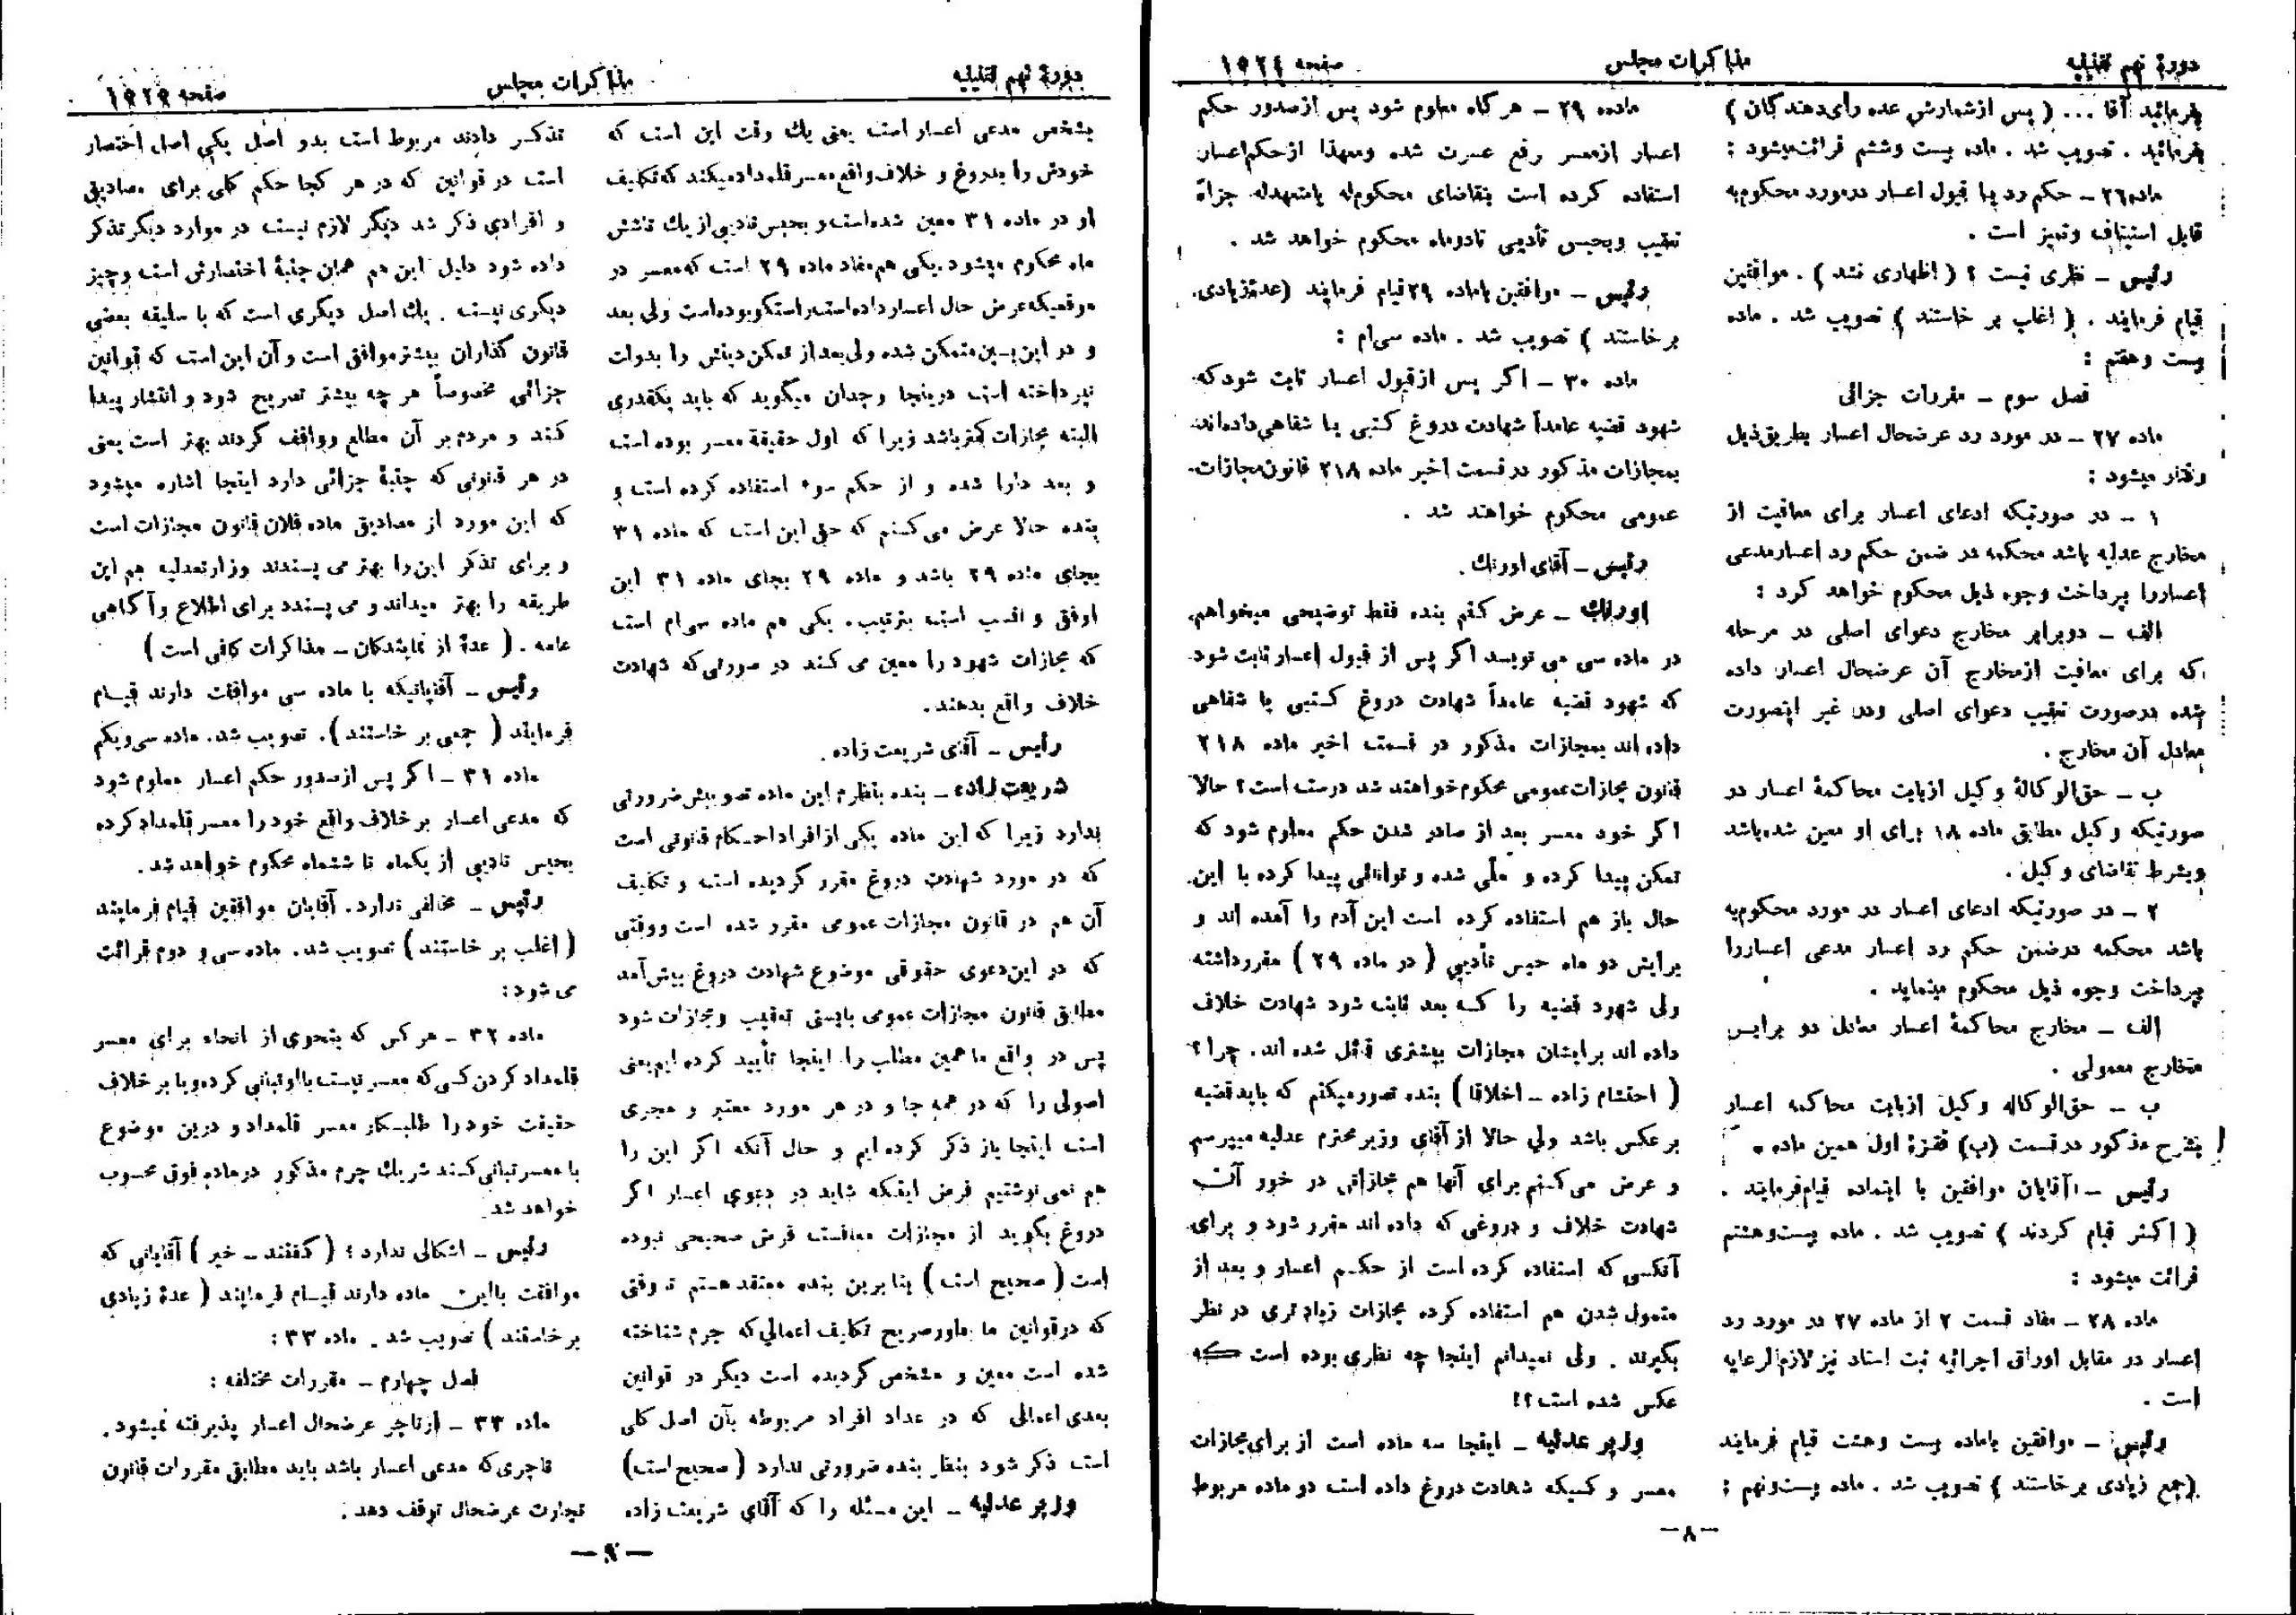 دورهٔ نهم تقنینیه
مذاکرات مجلس
صفحه ۱۵۲۴
بفرمائید آقا ... ( پس از شمارش عده رأی‌دهندگان )
بفرمائید . تصویب شد . ماده بیست وششم قرائت میشود :
ماده۲۶ - حکم رد یا قبول اعسار درمورد محکوم‌به
قابل استیناف وتمیز است .
رئیس - نظری نیست ؟ ( اظهاری نشد ) . موافقین
قیام فرمایند . ( اغلب بر خاستند ) تصویب شد . ماده
بیست وهفتم :
فصل سوم - مقررات جزائی
ماده ۲۷ - در مورد رد عرضحال اعسار بطریق ذیل
رفتار میشود :
۱ - در صورتیکه ادعای اعسار برای معافیت از
مخارج عدلیه باشد محکمه در ضمن حکم رد اعسار مدعی
اعساررا بپرداخت وجوه ذیل محکوم خواهد کرد :
الف - دوبرابر مخارج دعوای اصلی در مرحله
که برای معافیت ازمخارج آن عرضحال اعسار داده
شده درصورت تعقیب دعوای اصلی ودر غیر اینصورت
معادل آن مخارج .
ب - حق‌الوکالهٔ وکیل ازبابت محاکمهٔ اعسار در
صورتیکه وکیل مطابق ماده ۱۸ برای او معین شده‌باشد
وبشرط تقاضای وکیل .
۲ - در صورتیکه ادعای اعسار در مورد محکوم‌به
باشد محکمه درضمن حکم رد اعسار مدعی اعساررا
بپرداخت وجوه ذیل محکوم مینماید .
الف - مخارج محاکمهٔ اعسار معادل دو برابر
مخارج معمولی .
ب - حق‌الوکاله وکیل ازبابت محاکمه اعسار
بشرح مذکور درقسمت (ب) فقرهٔ اول همین ماده .
رئیس - آقایان موافقین با اینماده قیام‌فرمایند .
( اکثر قیام کردند ) تصویب شد . ماده بیست‌وهشتم
قرائت میشود :
ماده ۲۸ - مفاد قسمت ۲ از ماده ۲۷ در مورد رد
اعسار در مقابل اوراق اجرائیه ثبت اسناد نیز لازم‌الرعایه
است .
رئیس - موافقین باماده بیست وهشت قیام فرمایند
(جمع زیادی برخاستند ) تصویب شد . ماده بیست‌ونهم :
ماده ۲۹ - هرگاه معلوم شود پس ازصدور حکم
اعسار ازمعسر رفع عسرت شده ومعهذا ازحکم‌اعسار
استفاده کرده است بتقاضای محکوم‌له یامتعهدله جزاءً
تعقیب وبحبس تأدیبی تادوماه محکوم خواهد شد .
رئیس - موافقین باماده ۲۹ قیام فرمایند (عدهٔ‌زیادی
برخاستند ) تصویب شد . ماده سی‌ام :
ماده ۳۰ - اگر پس ازقبول اعسار ثابت شودکه
شهود قضیه عامداً شهادت دروغ کتبی یا شفاهی‌داده‌اند
بمجازات مذکور درقسمت اخیر ماده ۲۱۸ قانون‌مجازات
عمومی محکوم خواهند شد .
رئیس - آقای اورنگ .
اورنگ - عرض کنم بنده فقط توضیحی میخواهم
در ماده سی می نویسد اگر پس از قبول اعسار ثابت شود
که شهود قضیه عامداً شهادت دروغ کتبی یا شفاهی
داده اند بمجازات مذکور در قسمت اخیر ماده ۲۱۸
قانون مجازات‌عمومی محکوم‌خواهند شد درست است؟ حالا
اگر خود معسر بعد از صادر شدن حکم معلوم شود که
تمکن پیدا کرده و ملی شده و توانائی پیدا کرده با این
حال باز هم استفاده کرده است این آدم را آمده اند و
برایش دو ماه حبس تأدیبی ( در ماده ۲۹ ) مقررداشته
ولی شهود قضیه را که بعد ثابت شود شهادت خلاف
داده اند برایشان مجازات بیشتری قائل شده اند. چرا ؟
( احتشام زاده - اخلاقا ) بنده تصورمیکنم که بایدقضیه
برعکس باشد ولی حالا از آقای وزیرمحترم عدلیه میپرسم
و عرض می‌کنم برای آنها هم مجازاتی در خور آن
شهادت خلاف و دروغی که داده اند مقرر شود و برای
آنکسی که استفاده کرده است از حکم اعسار و بعد از
متمول شدن هم استفاده کرده مجازات زیادتری در نظر
بگیرند . ولی نمیدانم اینجا چه نظری بوده است که
عکس شده است؟!
وزیر عدلیه - اینجا سه ماده است از برای‌مجازات
معسر و کسیکه شهادت دروغ داده است دو ماده مربوط
-۸-
دورهٔ نهم تقنینیه
مذاکرات مجلس
صفحه ۱۵۲۵
بشخص مدعی اعسار است یعنی یك وقت این است که
خودش را بدروغ و خلاف‌واقع معسرقلمدادمیکند که‌تکلیف
او در ماده ۳۱ معین شده‌است‌و بحبس‌تادیبی‌از یك تاشش
ماه محکوم میشود .یکی هم‌مفاد ماده ۲۹ است که‌معسر در
موقعیکه‌عرض حال اعسارداده‌است‌راستگوبوده‌است ولی بعد
و در این‌بین‌متمکن شده ولی‌بعداز تمکن‌دینش را بدولت
نپرداخته است دراینجا وجدان میگوید که باید یکقدری
البته مجازات کمترباشد زیرا که اول حقیقة معسر بوده است
و بعد دارا شده و از حکم سوء استفاده کرده است و
بنده حالا عرض می‌کنم که حق این است که ماده ۳۱
بجای ماده ۲۹ باشد و ماده ۲۹ بجای ماده ۳۱ این
اوفق و انسب است بترتیب . یکی هم ماده سی‌ام است
که مجازات شهود را معین می کند در صورتی‌که شهادت
خلاف واقع بدهند.
رئیس - آقای شریعت زاده.
شریعت زاده - بنده بنظرم این ماده تصویبش‌ضرورتی
ندارد زیرا که این ماده یکی‌ازافراداحکام قانونی است
که در مورد شهادت دروغ مقرر گردیده است و تکلیف
آن هم در قانون مجازات عمومی مقرر شده است ووقتی
که در این‌دعوی حقوقی موضوع شهادت دروغ پیش‌آمد
مطابق قانون مجازات عمومی بایستی تعقیب ومجازات شود
پس در واقع ما همین مطلب را اینجا تأیید کرده ایم‌یعنی
اصولی را که در همه جا و در هر مورد معتبر و مجری
است اینجا باز ذکر کرده ایم و حال آنکه اگر این را
هم نمی‌نوشتیم فرض اینکه شاید در دعوی اعسار اگر
دروغ بگوید از مجازات معافست فرض صحیحی نبوده
است ( صحیح است ) بنا برین بنده معتقد هستم تا وقتی
که درقوانین ما بطورصریح تکلیف اعمالی‌که جرم شناخته
شده است معین و مشخص گردیده است دیگر در قوانین
بعدی اعمالی که در عداد افراد مربوطه بآن اصل کلی
است ذکر شود بنظر بنده ضرورتی ندارد ( صحیح است)
وزیر عدلیه - این مسئله را که آقای شریعت زاده
تذکر دادند مربوط است بدو اصل یکی اصل اختصار
است در قوانین که در هر کجا حکم کلی برای مصادیق
و افرادی ذکر شد دیگر لازم نیست در موارد دیگر تذکر
داده شود دلیل این هم همان جنبهٔ اختصارش است وچیز
دیگری نیست . یك اصل دیگری است که با سلیقه بعضی
قانون گذاران بیشترموافق است وآن این است که قوانین
جزائی مخصوصاً هر چه بیشتر تصریح شود و انتشار پیدا
کند و مردم بر آن مطلع وواقف گردند بهتر است یعنی
در هر قانونی که جنبهٔ جزائی دارد اینجا اشاره میشود
که این مورد از مصادیق ماده فلان قانون مجازات است
و برای تذکر این را بهتر می پسندند وزارتعدلیه هم این
طریقه را بهتر میداند و می پسندد برای اطلاع وآگاهی
عامه . ( عدهٔ از نمایندگان - مذاکرات کافی است )
رئیس - آقایانیکه با ماده سی موافقت دارند قیام
فرمایند ( جمعی بر خاستند ). تصویب شد. ماده سی‌ویکم
ماده ۳۱ - اگر پس ازصدور حکم اعسار معلوم شود
که مدعی اعسار برخلاف واقع خود را معسر قلمداد کرده
بحبس تادیبی از یکماه تا ششماه محکوم خواهد شد.
رئیس - مخالفی ندارد. آقایان موافقین قیام فرمایند
( اغلب بر خاستند ) تصویب شد. ماده سی و دوم قرائت
می شود:
ماده ۳۲ - هر کس که بنحوی از انحاء برای معسر
قلمداد کردن کسی‌که معسر نیست بااوتبانی کرده‌ویا برخلاف
حقیقت خود را طلبکار معسر قلمداد و درین موضوع
با معسرتبانی‌کند شریك جرم مذکور درماده فوق محسوب
خواهد شد.
رئیس - اشکالی ندارد ؟ ( گفتند - خیر ) آقایانی که
موافقت بااین ماده دارند قیام فرمایند ( عدهٔ زیادی
برخاستند ) تصویب شد . ماده ۳۳:
فصل چهارم - مقررات مختلفه :
ماده ۳۳ - ازتاجر عرضحال اعسار پذیرفته نمیشود.
تاجری‌که مدعی اعسار باشد باید مطابق مقررات قانون
تجارت عرضحال توقف دهد.
-۹-